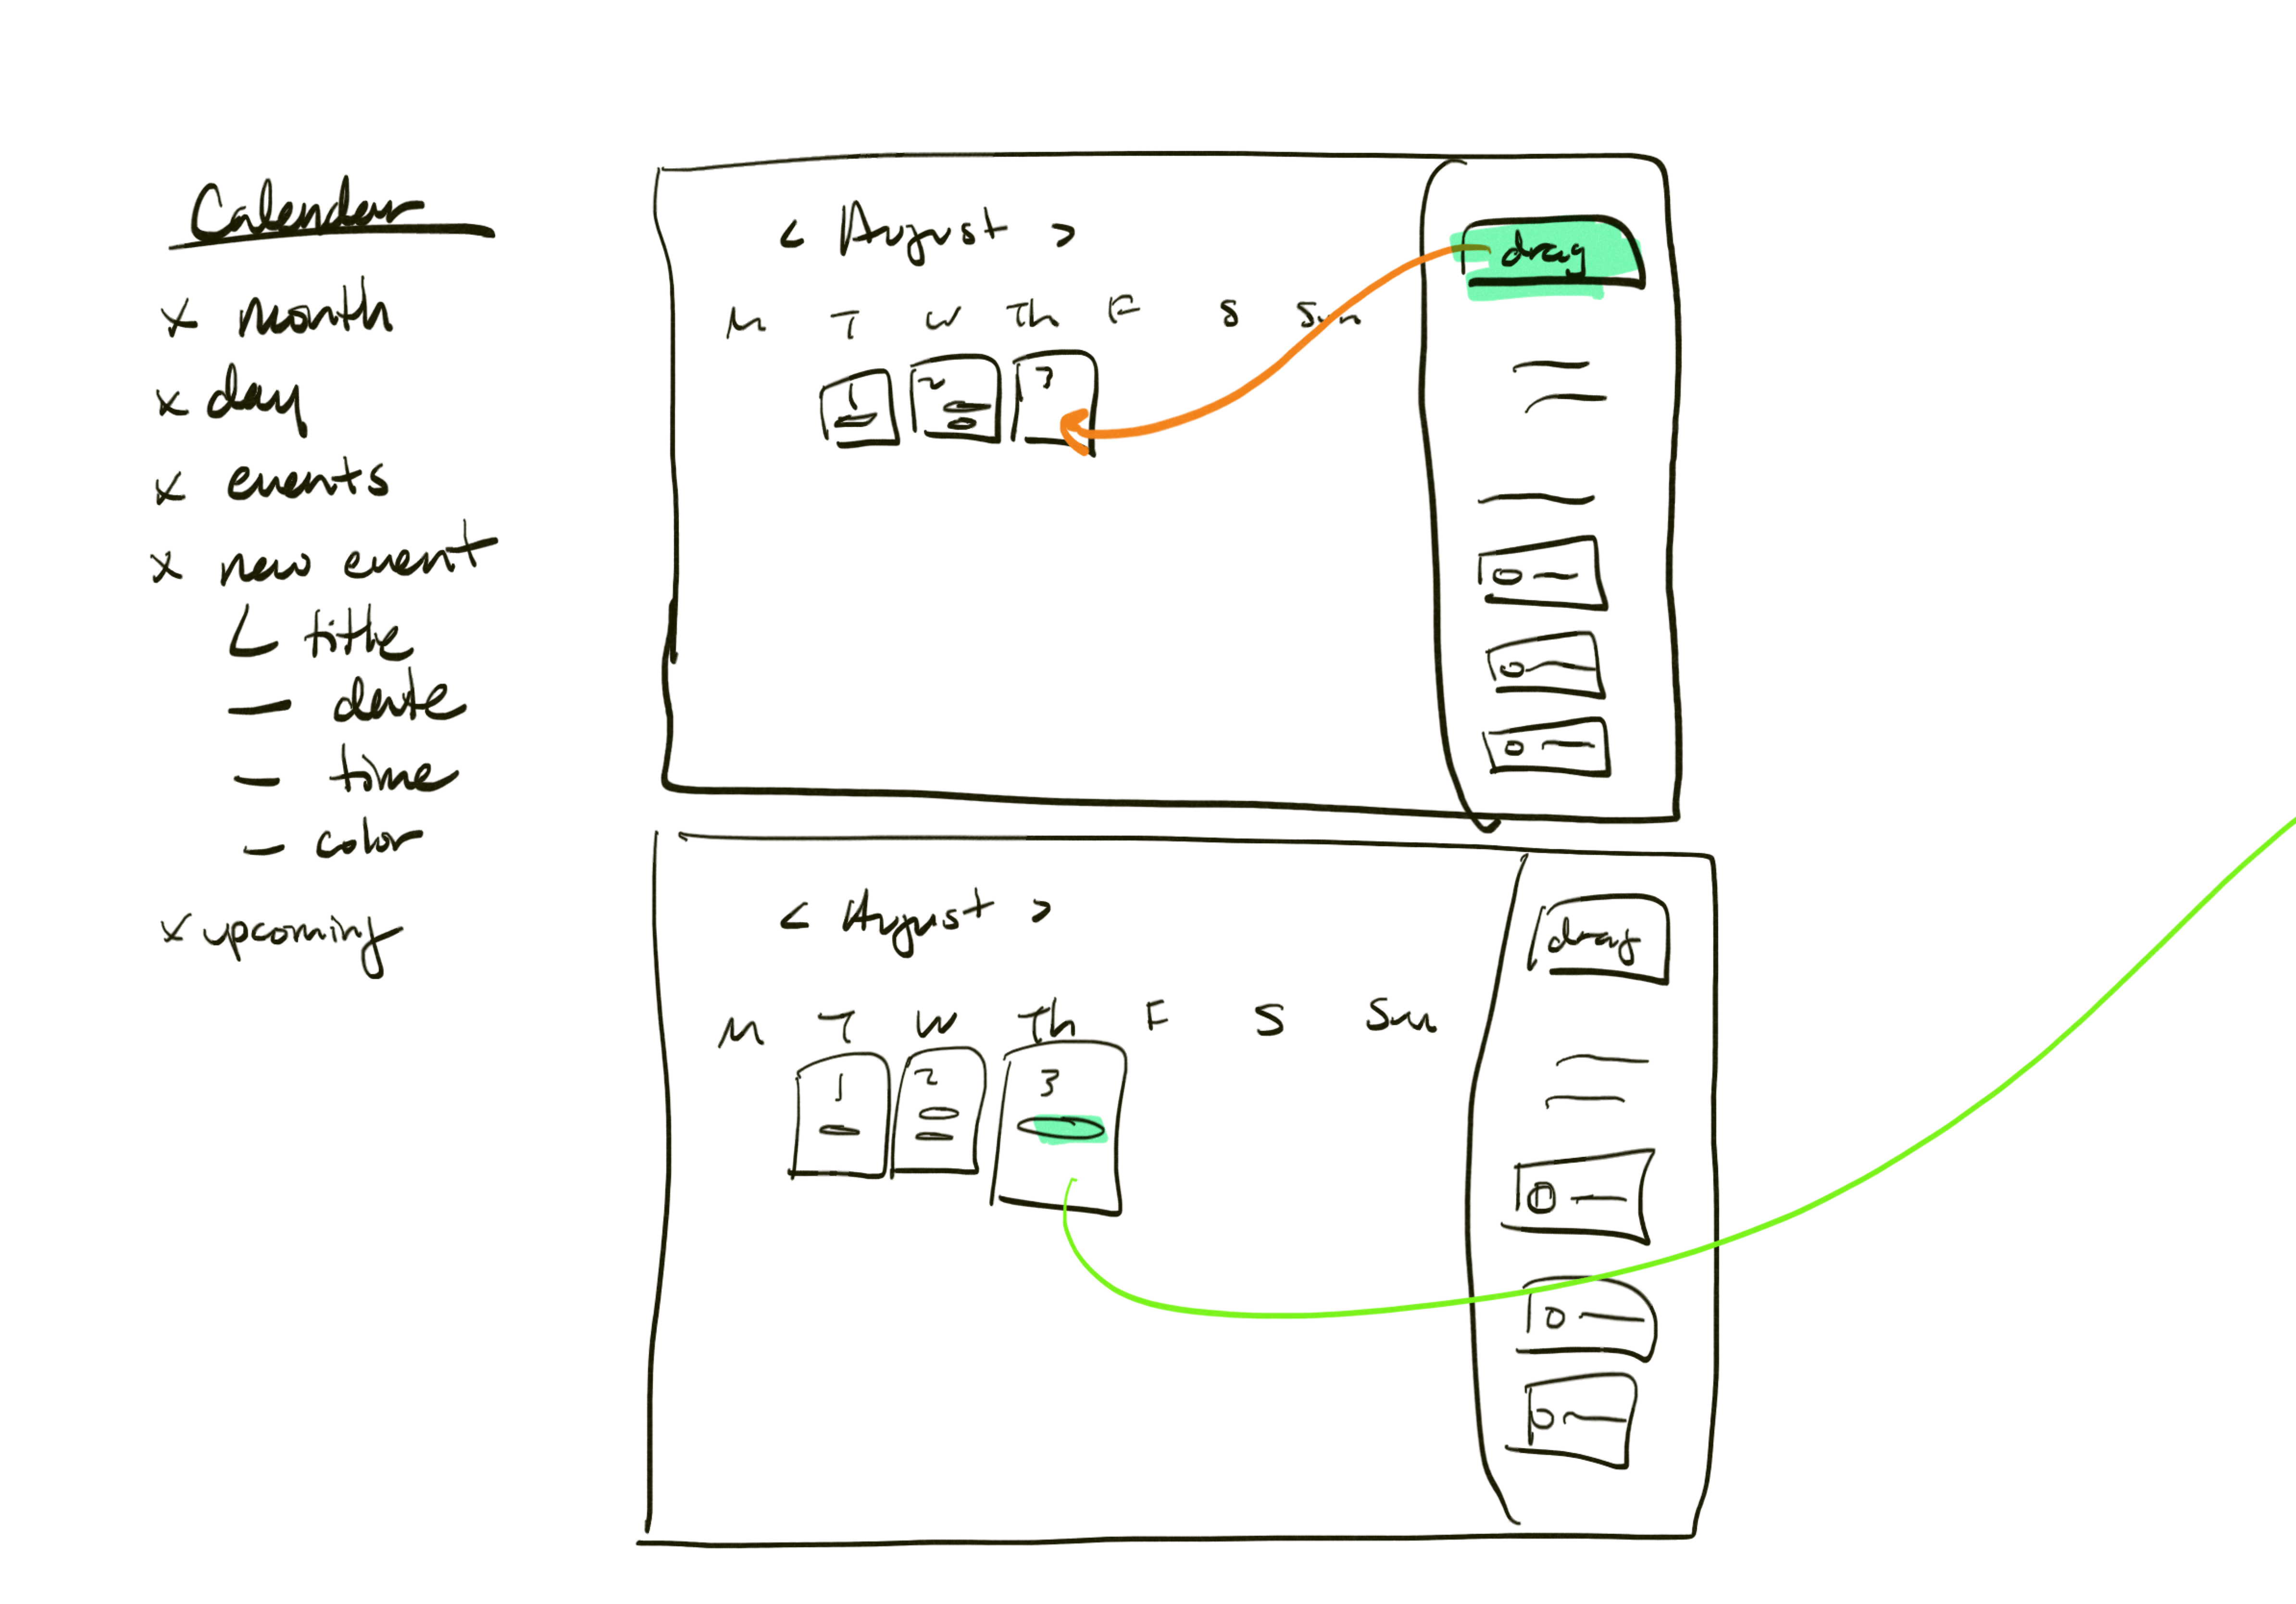 Calendar
x month
x day
x events
x new event
title
— date
— time
— color
x upcoming
< August >
drag
M T W Th F S Sun
1 2 3
< August >
drag
M T W Th F S Sun
1 2 3